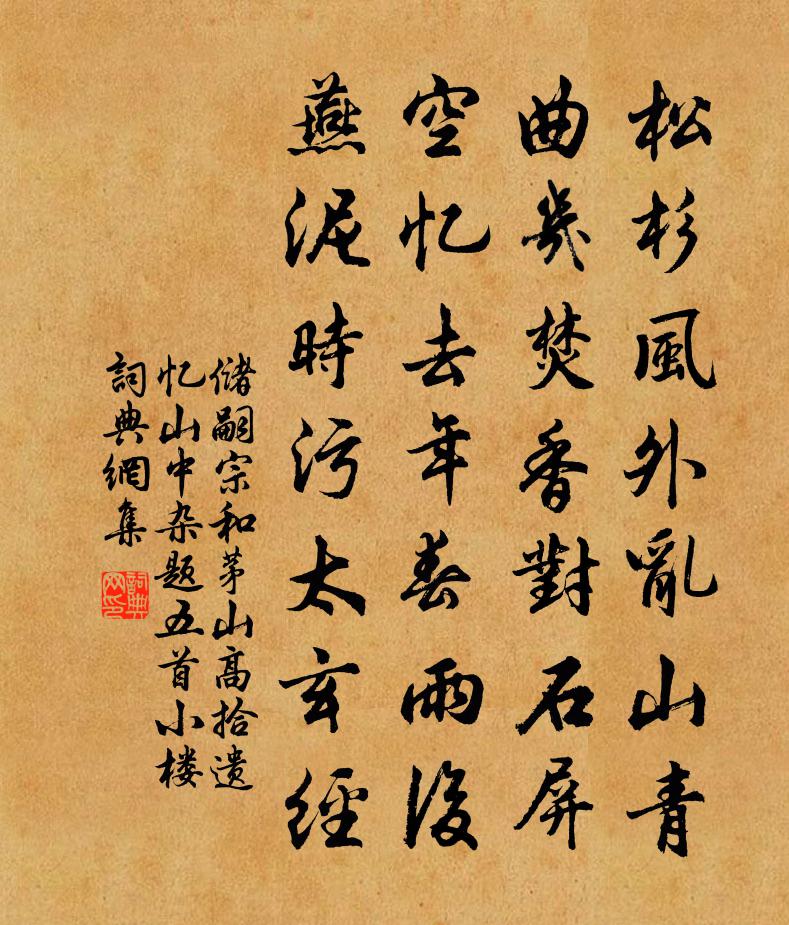 松杉風外亂山青
曲幾焚香對石屏
空忆去年春雨後
燕泥時污太玄經
储嗣宗和茅山高拾遗
忆山中杂题五首小楼
詞典網集
詞典网印